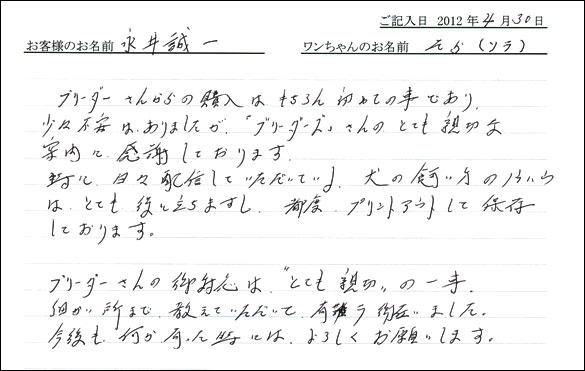 ご記入日 2012年4月30日
お客様のお名前 永井誠一 ワンちゃんのお名前 そら(ソラ)
ブリーダーさんからの購入はもちろん初めての事であり、
少々不安はありましたが、「ブリーダーズ」さんのとても親切な
案内に感謝しております。
特に、日々配信していただいている、犬の飼い方のノウハウ
は、とても役に立ちますし、都度、プリントアウトして保存
しております。
ブリーダーさんの御対応は、"とても親切"の一事、
細かい所まで、教えていただいて、有難う御座いました。
今後も何か有った時には、よろしくお願いします。